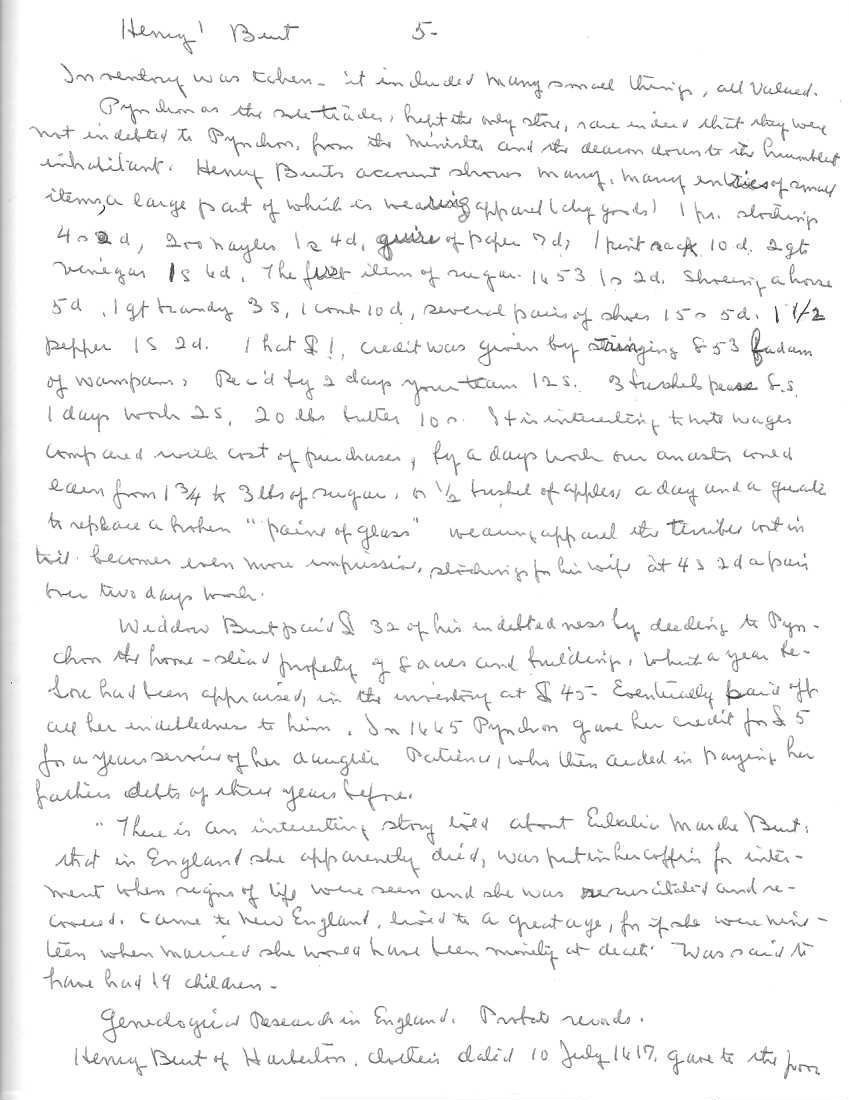 Henry¹ Burt 5-
Inventory was taken - it included many small things, all valued.
Pynchon as the sole trader, kept the only store, rare indeed that they were
not indebted to Pynchon, from the Minister and the deacon down to the humblest
inhabitant. Henry Burts account shows many, many entries of small
items, a large part of which is wearing apparel (dry goods) 1 pr. stockings
4s 2d, 200 nayles 1s 4d, quire of paper 7d, 1 pint sack 10 d. 2 qt
vinegar 1s 6d. The first item of sugar. 1653 1s 2d. Shoeing a horse
5d, 1 qt brandy 3s, 1 comb 10d, several pairs of shoes 15s 5d. 1 1/2
pepper 1s 2d. 1 hat £1, credit was given by stringing 853 fadam
of wampam, Rec'd by 2 days your team 12s. 3 bushels pease 8.s.
1 days work 2s, 20 lbs butter 10s. It is interesting to note wages
compared with cost of purchases, by a days work our ancestor could
earn from 1 3/4 to 3 lbs of sugar, or 1/2 bushel of apples, a day and a quarter
to replace a broken "paine of glass" wearing apparel the terrible cost in
toil becomes even more impressive, stockings for his wife at 4s 2d a pair
over two days work.
Widdow Burt paid £ 32 of his indebtedness by deeding to Pyn-
chon the home-stead property of 8 acres and building, what a year be-
fore had been appraised, in the inventory at £ 45- Eventually paid off
all her indebtedness to him. In 1665 Pynchon gave her credit for £ 5
for a years service of her daughter Patience, who then aided in paying her
fathers debts of three years before.
"There is an interesting story told about Eulalia Marche Burt,
that in England she apparently died, was put in her coffin for inter-
ment when signs of life were seen and she was resuscitated and re-
covered. Came to New England, lived to a great age, for if she were nine-
teen when married she would have been ninety at death. Was said to
have had 19 children -
Geneological Research in England. Probate records.
Henry Burt of Harberton, clothier dated 10 July 1617, gave to the poor